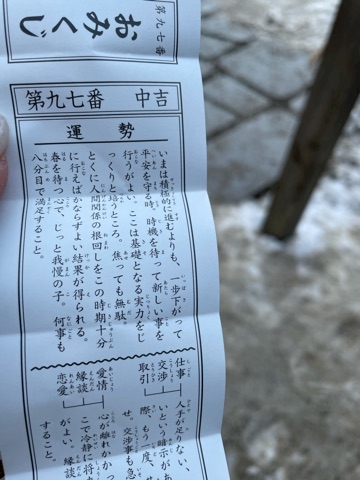 第九七番
おみくじ
第九七番 中吉
運勢
いまは積極的に進むよりも、一歩下がって
平安を守る時。時機を待って新しい事を
行うがよい。ここは基礎となる実力をじ
っくりと培うところ。焦っても無駄。
とくに人間関係の根回しをこの時期十分
に行えばかならずよい結果が得られる。
春を待つ心で、じっと我慢の子。何事も
八分目で満足すること。
仕事
交渉
取引
人手が足りない、
いという暗示があ
際、もう一度、せ
せ、交渉事も急
愛情
縁談
恋愛
心が離れかかっ
こで冷静に将
がよい。縁談
すること。